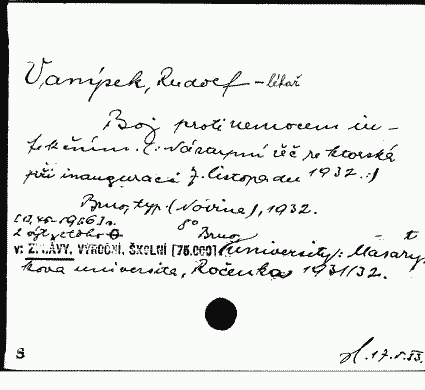 Vanýsek, Rudolf – lékař
Boj proti nemocem in-
fekčním. (Nástupní řěč rektorská
při inauguraci 7. listopadu 1932.)
Brno, typ. (Novina), 1932.
8° Brno
v: ZPRÁVY, VÝROČNÍ, ŠKOLNÍ [75.000] (university): Masary-
kova universita, Ročenka 1931/32.
S
17.5.53.